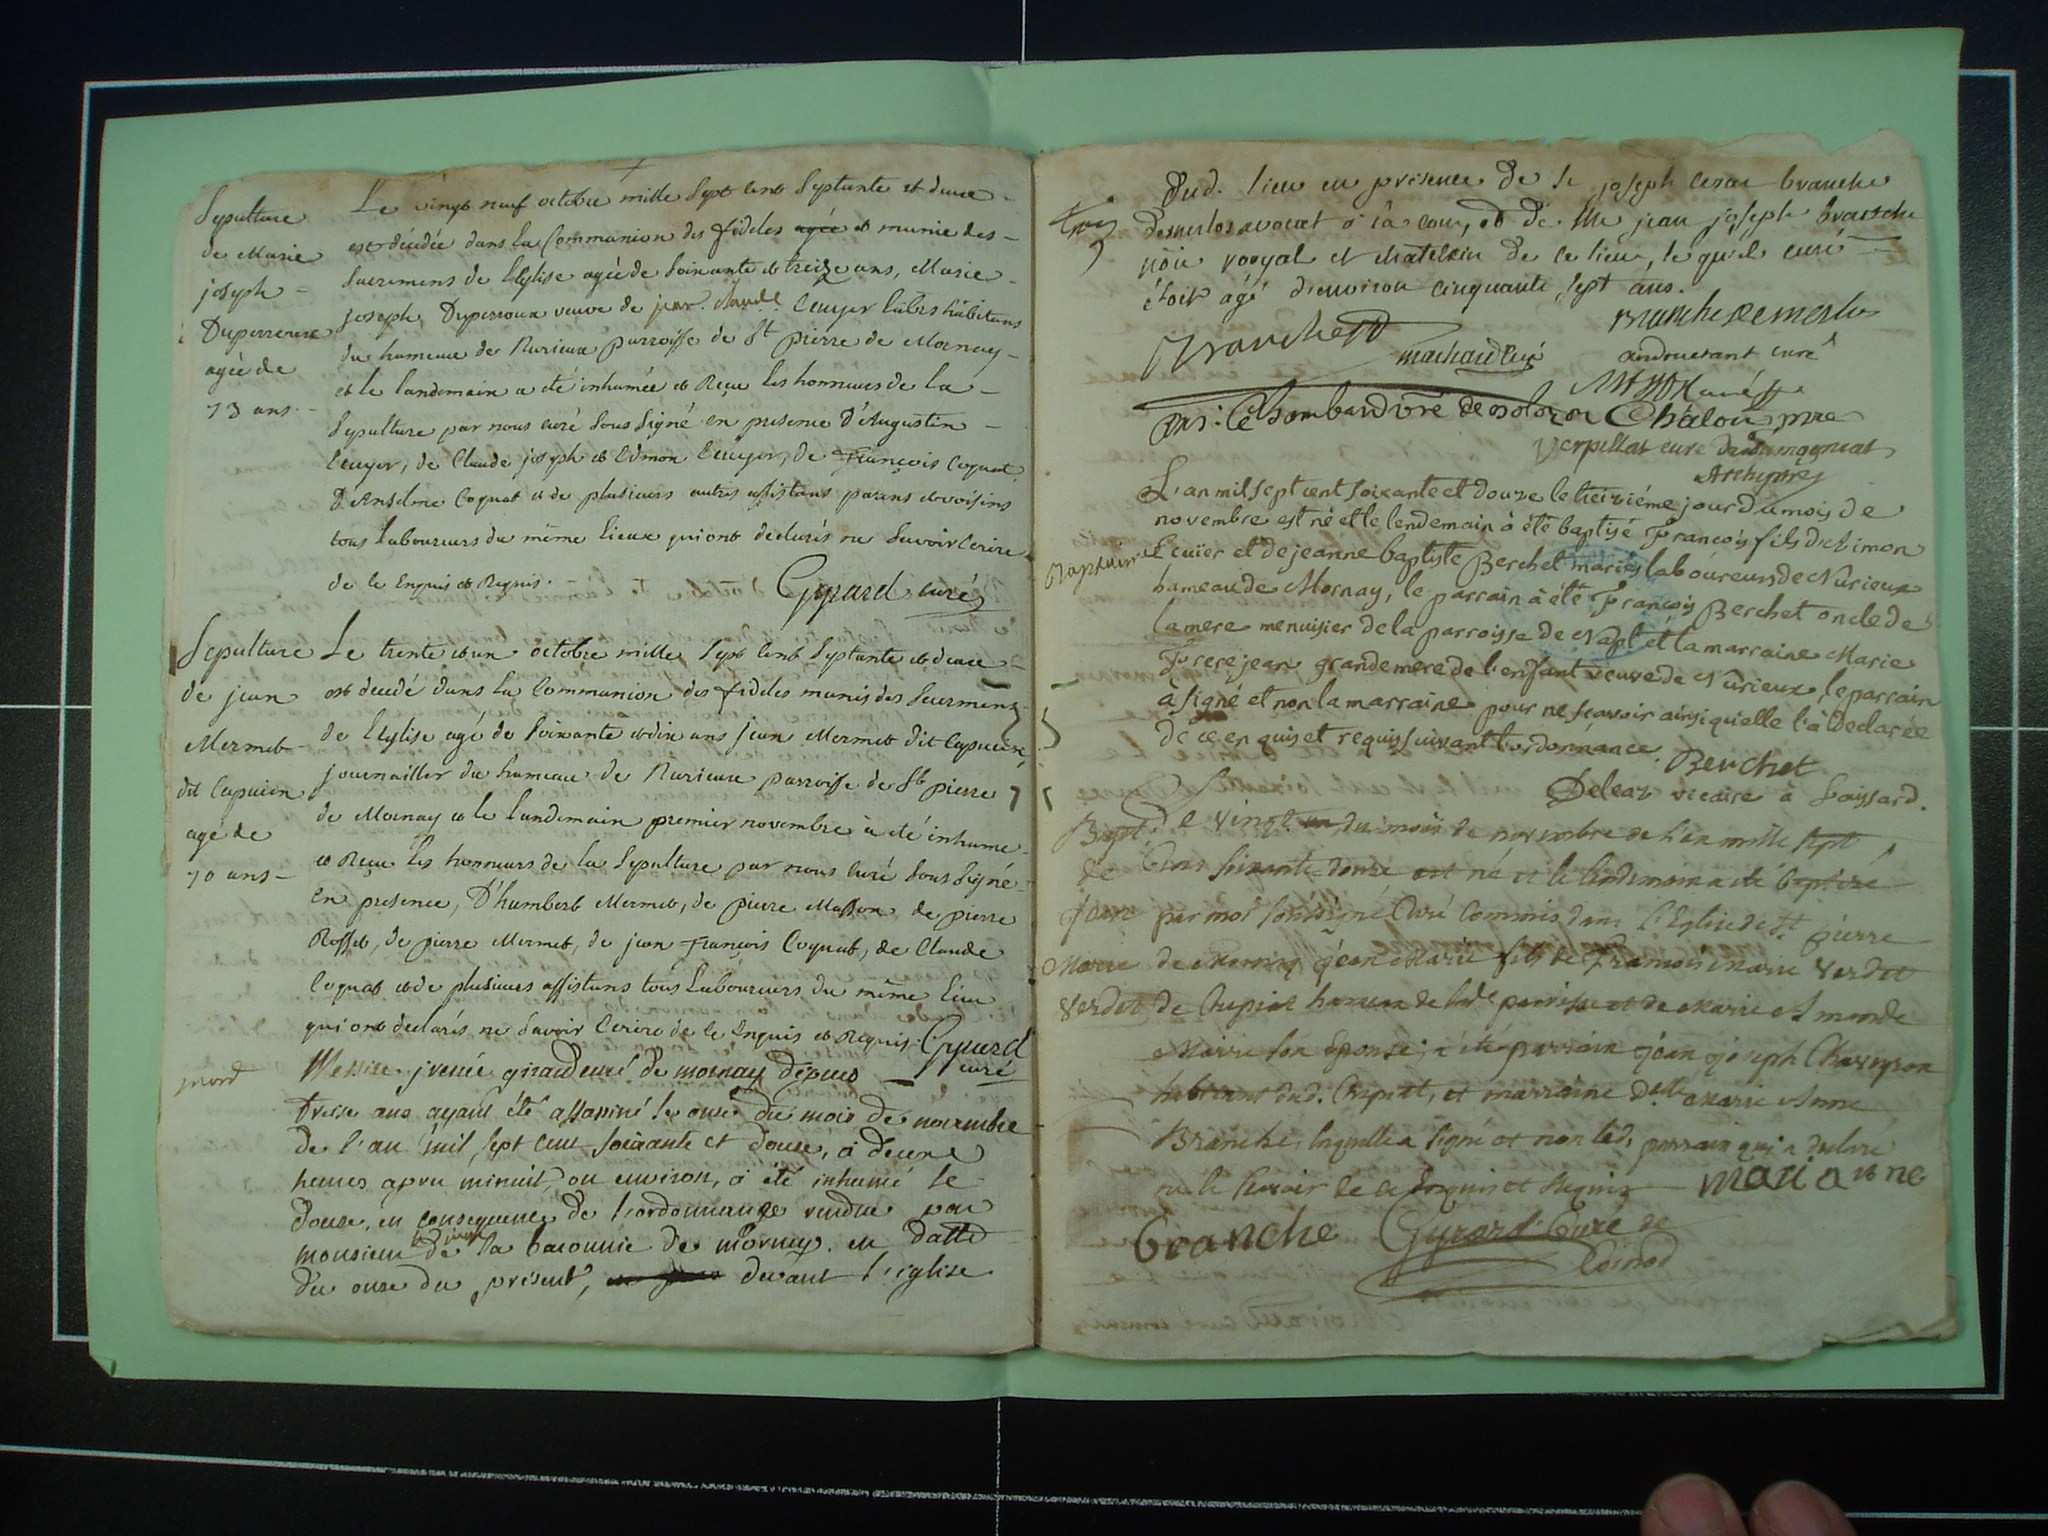 Sepulture
de Marie
joseph
Duperroux
agée de
73 ans
Le vingt neuf octobre mille Sept cent Septante et deux
est décédée dans la Communion des fideles agée et munie des
Sacremens de l'Eglise agée de Soixante et treize ans, Marie
joseph Duperroux veuve de jean claude Ecuyer habitans
du hameau de Nurieux parroisse de St pierre de Mornay
et le landemain a été inhumée et Reçu les honneurs de la
Sepulture par nous curé Sous Signé en presence d'Augustin
Ecuyer, de Claude joseph et Edmon Ecuyer, de François Coquat
d'Anselme Coquat et de plusieurs autres assistans parens et voisins
tous laboureurs du même lieux qui ont declarés ne Savoir Ecrire
de ce Enquis et Requis.
Gyrard curé
Sepulture
de jean
Mermet
dit Capucin
agé de
70 ans
Le trente et un octobre mille Sept cent Septante et deux
est decedé dans la Communion des fideles munis des Sacremens
de l'Eglise agé de Soixante et dix ans jean Mermet dit Capucin
journallier du hameau de Nurieux parroisse de St pierre
de Mornay et le landemain premier novembre a été inhumé
et Reçu les honneurs de la Sepulture par nous Curé Sous Signé
en presence, D'humbert Mermet, de pierre Masson de pierre
Rosset, de pierre Mermet, de jean François Coquat, de Claude
Coquat et de plusieurs assistans tous Laboureurs du même Lieu
qui ont declarés ne Savoir Ecrire de ce Enquis et Requis. Gyrard
curé
mort
Messire jrenée giraud curé de mornay depuis
treise ans ayant été assasiné le onze du mois de novembre
de l'an mil sept cent soixante et douse, à deux
heures apres minuit, ou environ, a été inhumé le
douse, en consequence de l'ordonnance rendue par
monsieur le juge de la baronnie de mornay en datte
du onze du présent, devant l'église
dud. lieu en présence de Sr joseph cesar branche
desmerlos avocat à la cour, et de Me jean joseph branche
noire royal et chatelain de ce lieu, lequel curé
étoit agé d'environ cinquante sept ans.
Branche
Branche Demerlo
machard curé
andouerant curé
curé
Chalon ptre
Verpillat curé de
Archiptre
Baptaime
L'an mil sept cent soixante et douze le treiziéme jour du mois de
novembre est né et le lendemain à été baptisé François fils d'Edmon
Ecuier et de jeanne baptiste Berchet mariés laboureurs de Nurieux
hameau de Mornay, le parrain à été François Berchet oncle de
la mere menuisier de la parroisse de Napt et la marraine Marie
Frerejean grandemere de l'enfant veuve de Nurieux, le parrain
a signé et non la marraine pour ne scavoir ainsi qu'elle l'à Declarée
de ce enquis et requis suivant l'ordonnance. Berchet
Deleaz vicaire à Saissard.
Bapt.
de
jean
Marie
Verdet
Le vingt un du mois de novembre de l'an mille Sept
Cens Soixante douze est né et le lendemain a été baptizé
par moi soussigné Curé Commis dans l'Eglise de St pierre
de Mornay jean Marie fils de François Marie Verdet
de Crepiat hameau de lade parroisse et de Marie
Marie son Epouse; a été parrain jean joseph
habitant dud. Crepiat, et marraine Delle Marie Anne
Branche, laquelle a signé et non led. parrain qui a declaré
ne le Savoir de ce Enquis et Requis Marianne
branche Gyrard Curé de